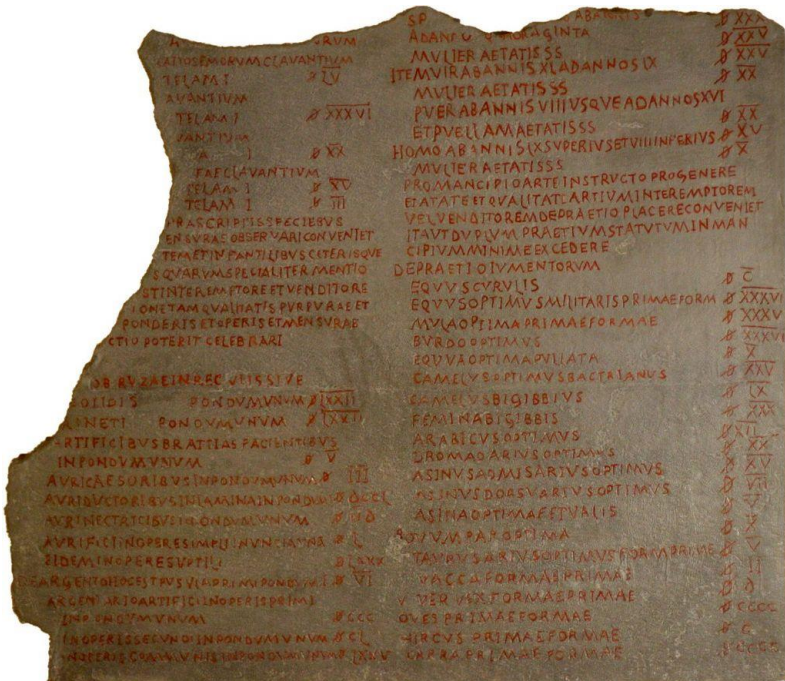 TELAM I
AVANTIUM
TELAM I ꟁ X̅X̅X̅V̅I̅
VANTIUM
I ꟁ X̅X̅
TELAM I ꟁ X̅V̅
TELAM I ꟁ I̅I̅I̅
PRASCRIPTIS SPECIEBUS
ENSURAE OBSERVARI CONVENIET
TEM ET IN PANTILIBUS CETERISQUE
S QUARUM SPECIALITER MENTIO
ST INTER EMPTORE ET VENDITORE
IONE TAM QUALITATIS PURPURAE ET
PONDERIS ET OPERIS ET MENSURAE
CTIO POTERIT CELEBRARI
OBRUZAE IN REGULIS SIVE
OLIDIS PONDUM UNUM ꟁ L̅X̅X̅I̅I̅
NETI PONDUM UNUM ꟁ L̅X̅X̅I̅I̅
ARTIFICIBUS BRATTIAS FACIENTIBUS
IN PONDUM UNUM ꟁ V̅
AURI CAESORIBUS IN PONDUM UNUM ꟁ I̅I̅I̅
AURI DUCTORIBUS IN LAMINA IN PONDUM
AURI NECTRICIBUS IN PONDUM UNUM
AURIFICI IN OPERE SIMPLI IN UNCIA UNA ꟁ L
EIDEM IN OPERE SUPTILI
ARGENTARIO ARTIFICI IN OPERIS PRIMI
IN PONDUM UNUM ꟁ CCC
IN OPERIS SECUNDI IN PONDUM UNUM ꟁ CL
IN OPERIS COMMUNIS IN PONDUM UNUM ꟁ LXXV
ꟁ X̅X̅X̅
AD AN QUADRAGINTA ꟁ X̅X̅V̅
MULIER AETATIS SS ꟁ X̅X̅V̅
ITEM VIR AB ANNIS XL AD ANNOS LX ꟁ X̅X̅
MULIER AETATIS SS
PUER AB ANNIS VIII USQUE AD ANNOS XVI
ET PUELLAM AETATIS SS ꟁ X̅X̅
HOMO AB ANNIS LX SUPERIUS ET VIII INFERIUS ꟁ X̅V̅
MULIER AETATIS SS ꟁ X̅
PRO MANCIPIO ARTE INSTRUCTO PRO GENERE
ET AETATE ET QUALITAT ARTIUM INTER EMPTOREM
VEL VENDITOREM DE PRAETIO PLACERE CONVENIET
ITA UT DUPLUM PRAETIUM STATUTUM IN MAN
CIPIUM MINIME EXCEDERE
DE PRAETIO IUMENTORUM
EQUUS CURULIS ꟁ C̅
EQUUS OPTIMUS MILITARIS PRIMAE FORM ꟁ X̅X̅X̅V̅I̅
MULA OPTIMA PRIMAE FORMAE ꟁ X̅X̅X̅V̅
BURDO OPTIMUS ꟁ X̅X̅X̅V̅I̅
EQUUA OPTIMA PULIATA ꟁ X̅
CAMELUS OPTIMUS BACTRIANUS ꟁ X̅X̅V̅
CAMELUS BIGIBBIUS ꟁ L̅X̅
FEMINA BIGIBBIS ꟁ X̅X̅X̅
ARABICUS OPTIMUS ꟁ X̅I̅I̅
DROMADARIUS OPTIMUS ꟁ X̅X̅
ASINUS ADMISARIUS OPTIMUS ꟁ X̅V̅
ASINUS DORSUARIUS OPTIMUS ꟁ V̅I̅I̅
ASINA OPTIMA FETUALIS ꟁ V̅
BOUUM PAR OPTIMA ꟁ X̅
TAURUS ARIUS OPTIMUS FORM PRIME ꟁ V̅
VACCA FORMAE PRIMAE ꟁ I̅I̅
VERVEX FORMAE PRIMAE ꟁ D
OUES PRIMAE FORMAE ꟁ CCCC
HIRCUS PRIMAE FORMAE
CAPRA PRIMAE FORMAE ꟁ CCCC